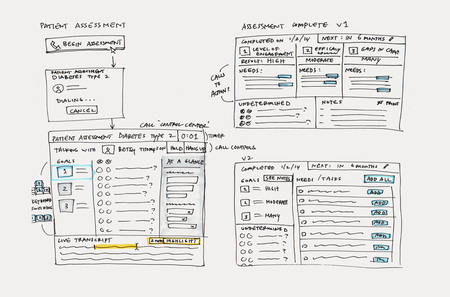 PATIENT ASSESSMENT
BEGIN ASSESSMENT
PATIENT ASSESSMENT
DIABETES TYPE 2
DIALING...
CANCEL
CALL "CONTROL CENTER"
PATIENT ASSESSMENT DIABETES TYPE 2
0:01
TIMER
TALKING WITH
HOLD
HANG UP
CALL CONTROLS
GOALS
AT A GLANCE
1
2
3
KEYBOARD
LIVE TRANSCRIPT
HIGHLIGHT
ASSESSMENT COMPLETE V1
COMPLETED ON 1/2/14
NEXT: IN 6 MONTHS
1 LEVEL OF ENGAGEMENT
2 EFFICACY
3 GAPS IN CARE
RESULT: HIGH
MODERATE
MANY
NEEDS:
NEEDS:
NEEDS:
CALL TO ACTION?
UNDETERMINED
NOTES
PRINT
?
?
V2
COMPLETED 1/2/14
NEXT: IN 6 MONTHS
GOALS
SEE NOTES
NEEDS/TASKS
ADD ALL
1 = HIGH
1 = MODERATE
3 = MANY
UNDETERMINED
ADD
ADD
ADD
ADD
ADD
ADD